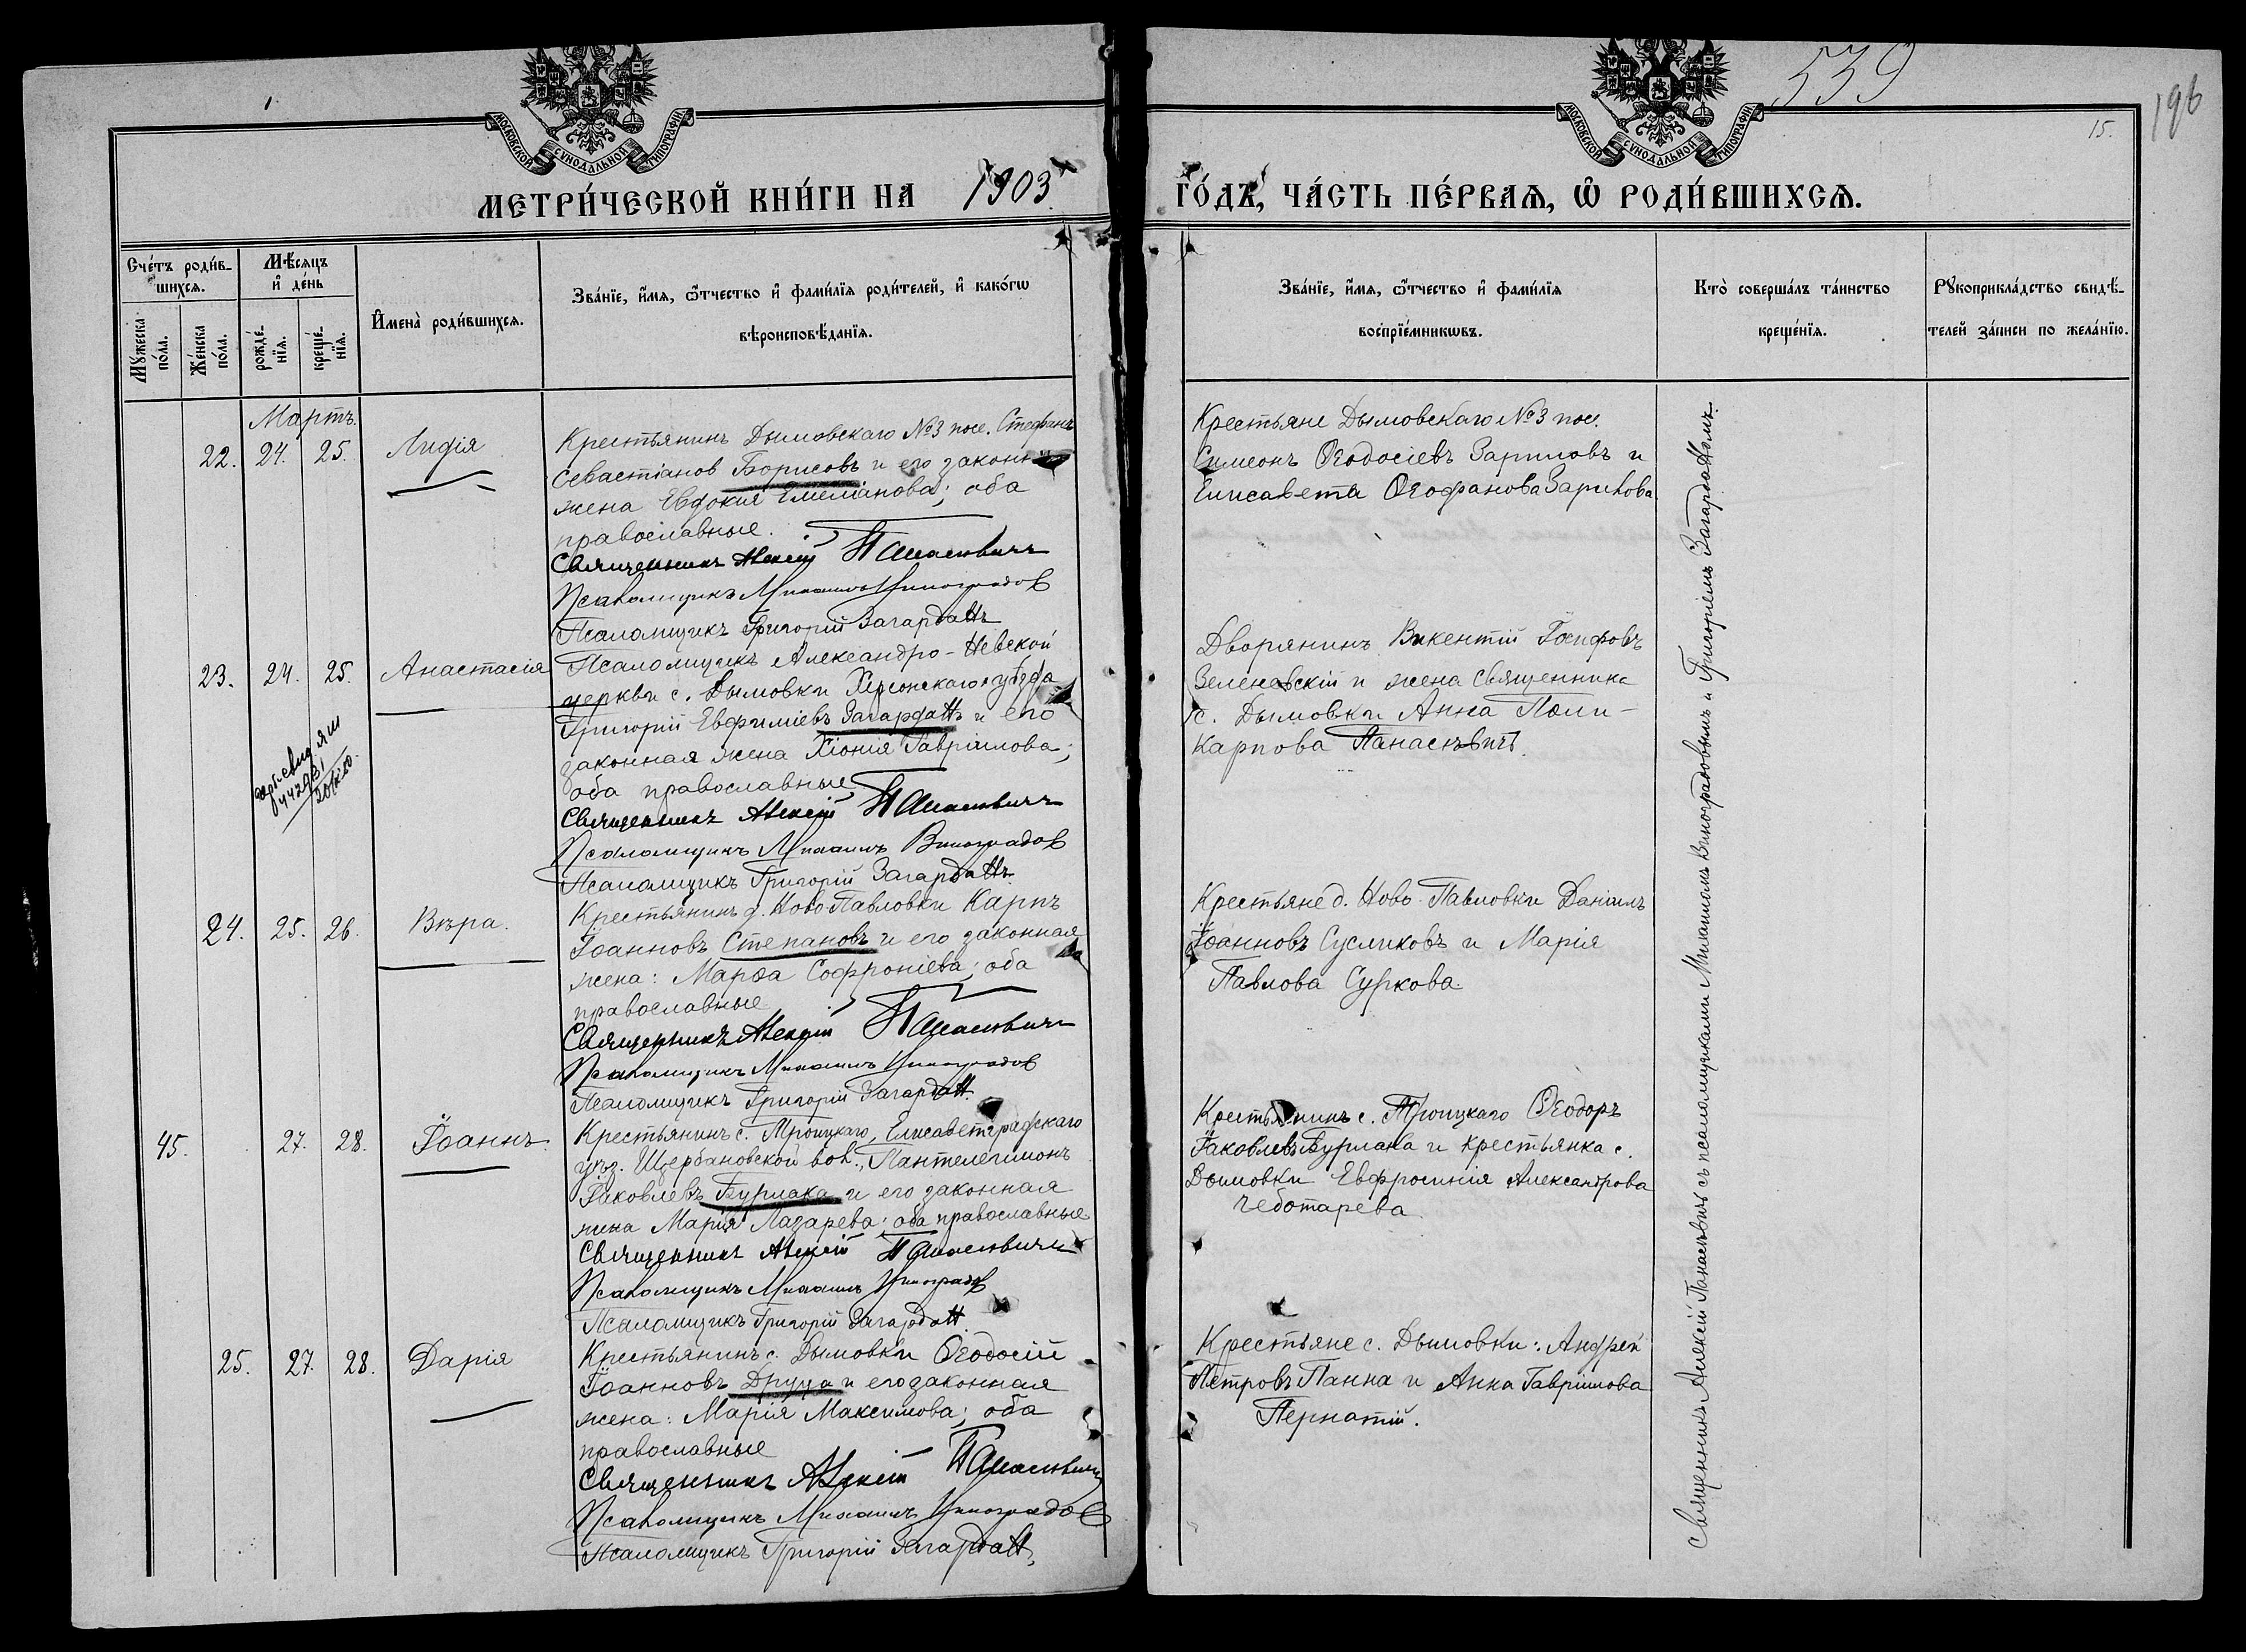 539
196
15.
МОСКОВСКОЙ СѴНОДАЛЬНОЙ ТИПОГРАФІИ
МОСКОВСКОЙ СѴНОДАЛЬНОЙ ТИПОГРАФІИ
МЕТРИ́ЧЕСКОЙ КНИ́ГИ НА 1903
ГО́ДЪ, ЧА́СТЬ ПЕ́РВАѦ, Ѽ РОДИ́ВШИХСѦ.
Счетъ роди́в-
шихсѧ.
Мѣсѧцъ
и҆ де́нь
Мꙋжеска
по́ла.
Же́нска
по́ла.
рожде́-
нїѧ.
креще́-
нїѧ.
И҆мена̀ роди́вшихсѧ.
Зва́нїе, и҆́мѧ, ѻ҆́тчество и҆ фами́лїѧ роди́телей, и҆ како́гѡ
вѣроисповѣ́данїѧ.
Зва́нїе, и҆́мѧ, ѻ҆́тчество и҆ фами́лїѧ
воспрїе́мникѡвъ.
Кто̀ соверша́лъ та́инство
креще́нїѧ.
Рꙋкоприкла́дство свидѣ́-
телей за́писи по жела́нїю.
Мартъ.
22. 24. 25. Лидія
Крестьянинъ Дымовскаго №3 пос. Стефанъ
Севастіанов Борисовъ и его законная
жена Евдокія Емеліанова; оба
православные.
Священникъ Алексій Панасевичъ
Псаломщикъ Михаилъ Виноградов
Псаломщикъ Григорій Загардан
Крестьяне Дымовскаго №3 пос.
Симеонъ Ѳеодосіевъ Зариповъ и
Елисавета Ѳеофанова
23. 24. 25. Анастасія
Псаломщикъ Александро-Невской
церкви с. Дымовки Херсонскаго уѣзда
Григорій Евфиміевъ Загарданъ и его
законная жена Хіонія Гавріилова;
оба православные
Священникъ Алексій Панасевичъ
Псаломщикъ Михаилъ Виноградов
Псаломщикъ Григорій Загардан
Дворянинъ Викентій Іосифовъ
Зеленевскій и жена священника
с. Дымовки Анна Поли-
карпова Панасевичъ.
24. 25. 26. Вѣра.
Крестьянинъ д. Ново-Павловки Карпъ
Іоанновъ Степановъ и его законная
жена: Марѳа Софроніева; оба
православные
Священникъ Алексій Панасевичъ
Псаломщикъ Михаилъ Виноградов
Псаломщикъ Григорій Загардан.
Крестьяне д. Ново-Павловки Даніилъ
Іоанновъ Сусликовъ и Марія
Павлова Суркова.
45. 27. 28. Іоаннъ.
Крестьянинъ с. Троицкаго, Елисаветградскаго
уѣз. Щербановской вол., Пантелеимонъ
Іаковлевъ Бурлака и его законная
жена Марія Лазарева; оба православные
Священникъ Алексій Панасевичъ
Псаломщикъ Михаилъ Виноградов
Псаломщикъ Григорій Загардан.
Крестьянинъ с. Троицкаго Ѳеодоръ
Іаковлевъ Бурлака и крестьянка с.
Дымовки Евфросинія Александрова
Чеботарева.
25. 27. 28. Дарія
Крестьянинъ с. Дымовки Ѳеодосій
Іоанновъ Друца и его законная
жена: Марія Максимова; оба
православные
Священникъ Алексій Панасевичъ
Псаломщикъ Михаилъ Виноградов
Псаломщикъ Григорій Загардан.
Крестьяне с. Дымовки: Андрей
Петровъ Панна и Анна Гавріилова
Пернатій.
Священникъ Алексій Панасевичъ съ псаломщиками Михаиломъ Виноградовымъ и Григоріемъ Загарданомъ.